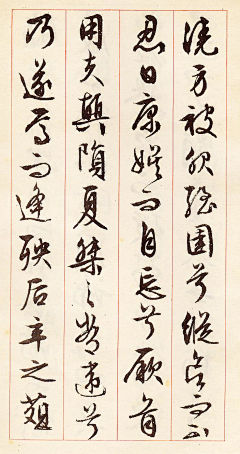 澆身被服强圉兮縱欲而不
忍日康娱而自忘兮厥首
用夫顛隕夏桀之常違兮
乃遂焉而逢殃后辛之菹